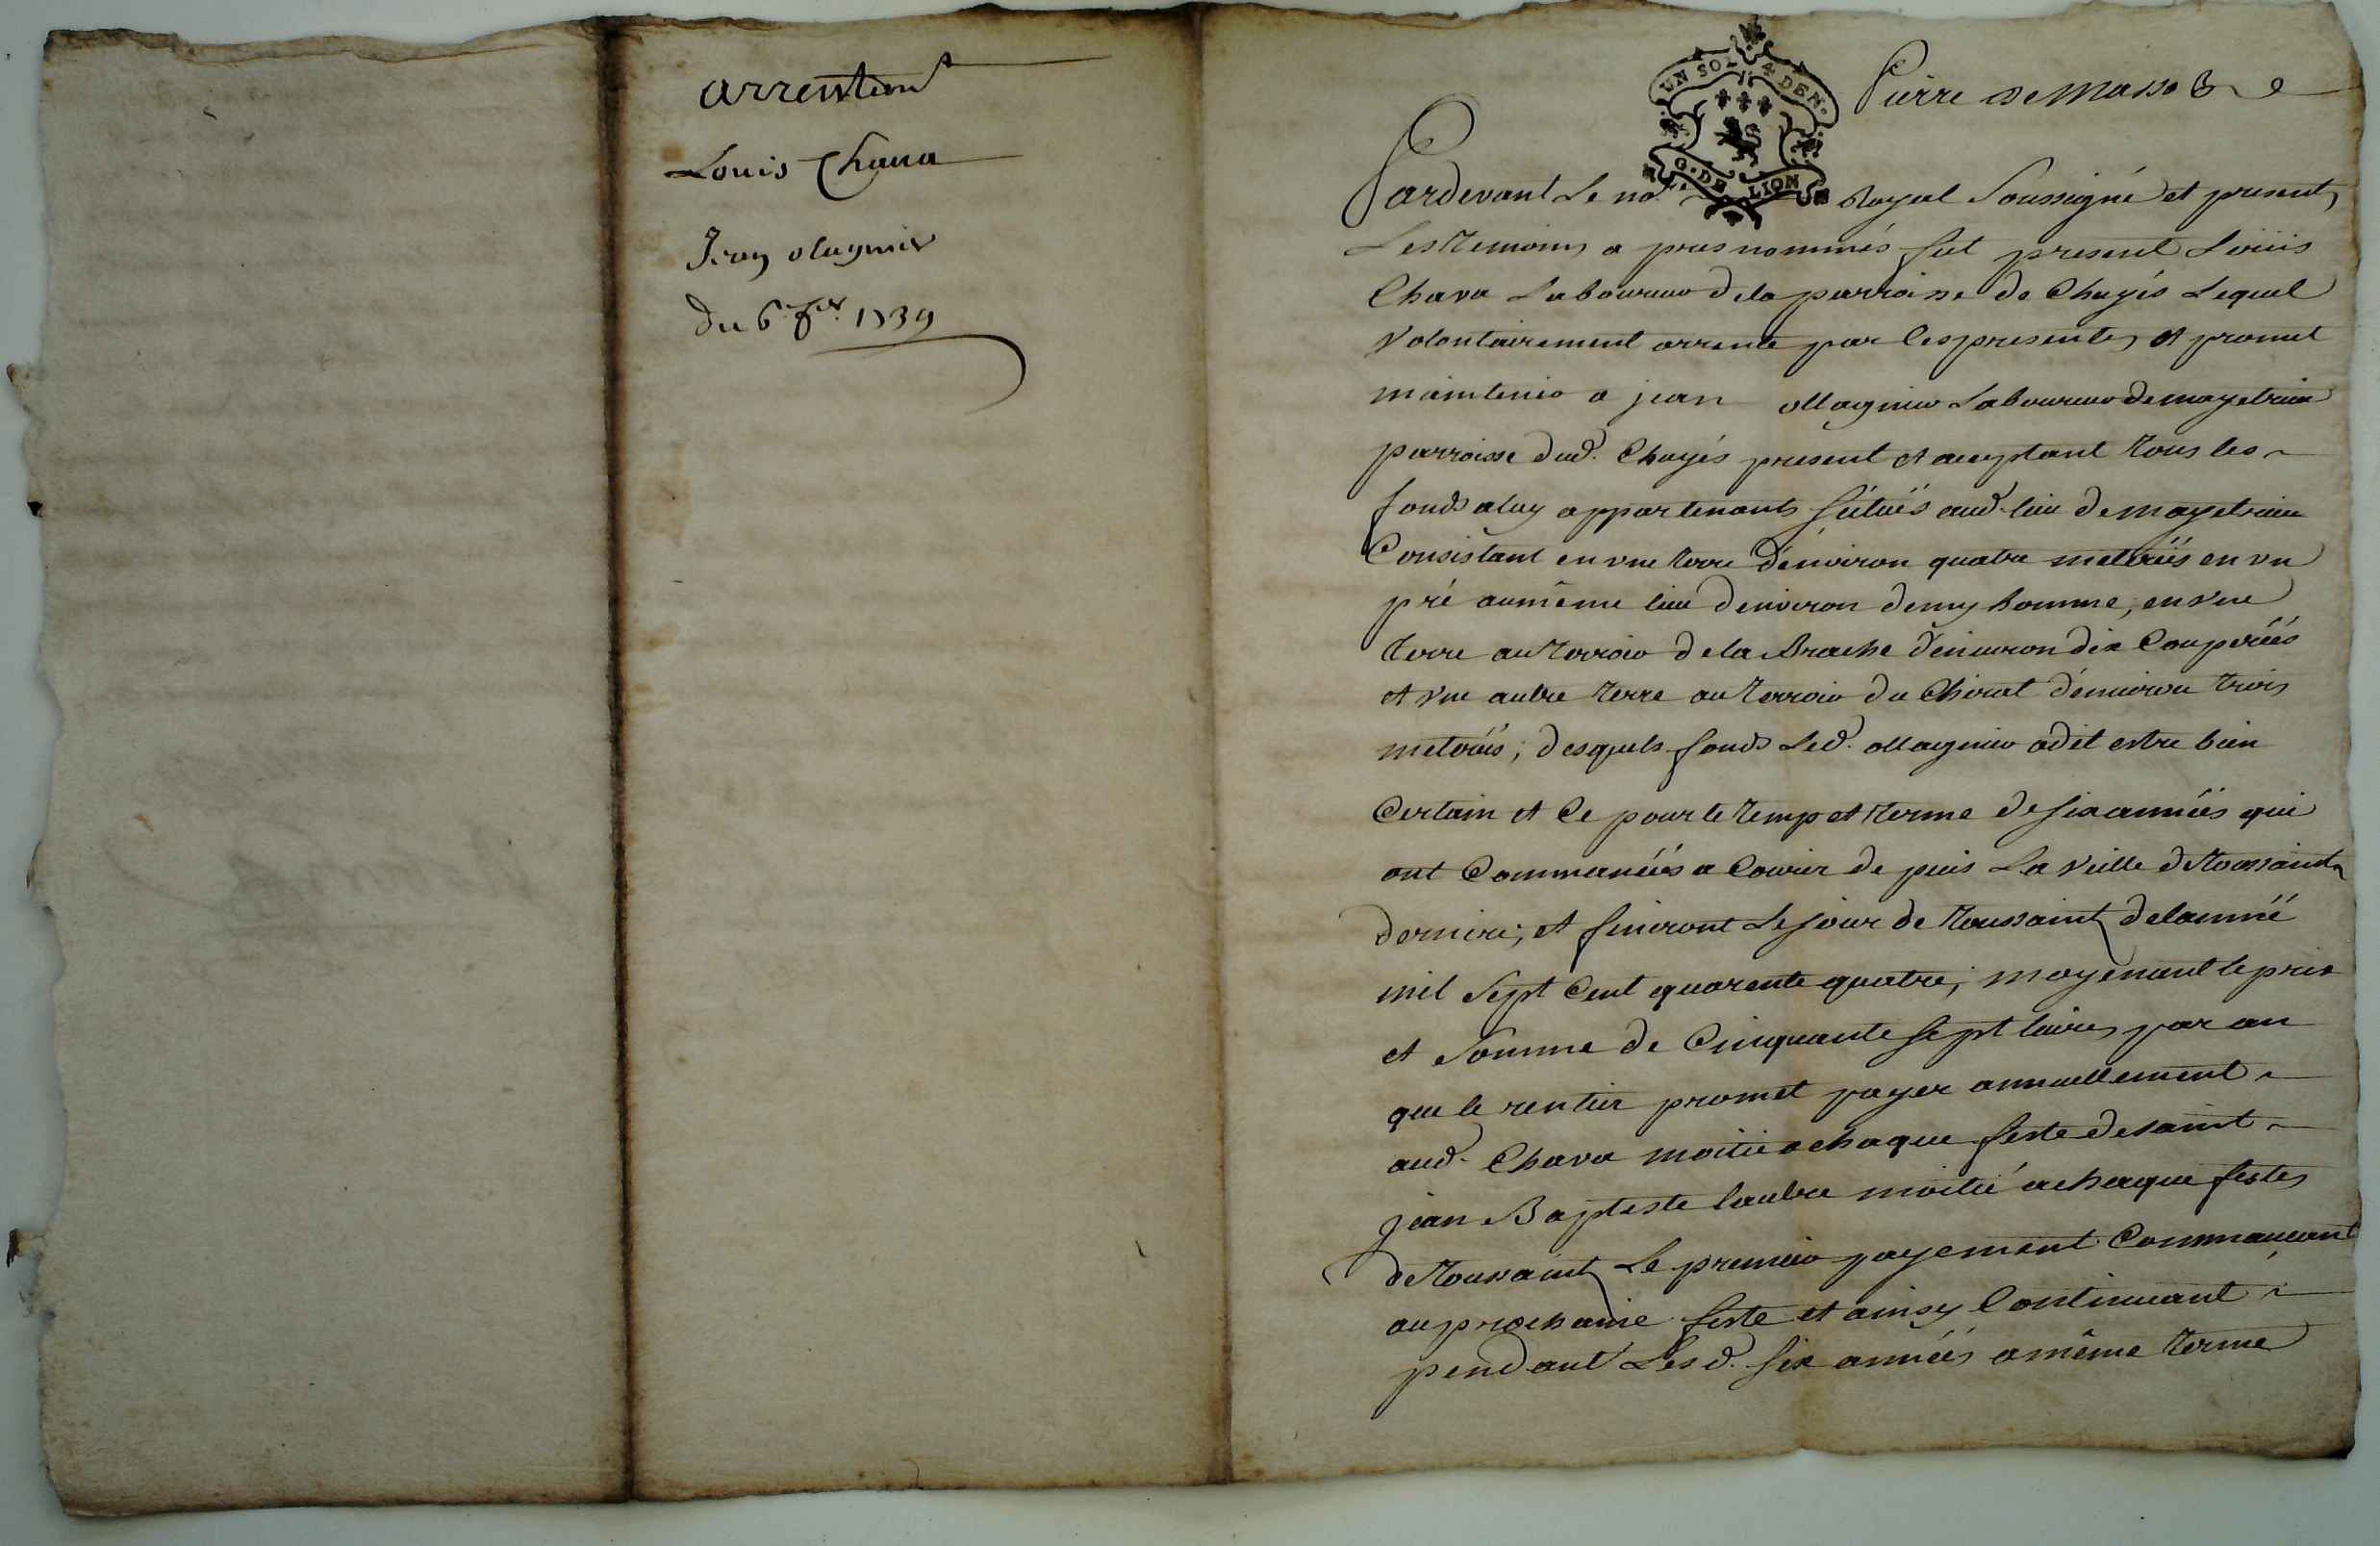 arrentem^t
Louis Chaua
Jean olagnier
du 6. f^er. 1739
UN SOL 4 DEN.
G. DE LION
Pierre de masso
Pardevant Le no^re Royal Soussigné et present
Les temoins a pres nommés fut present Loüis
Chava Laboureur de la parroisse de Chayés Lequel
Volontairement arrente par les presentes et promet
maintenir a jean ollagnier Laboureur de mayetrieu
parroisse dud. Chayés present et aceptant tous les
fonds a luy appartenants sitüés aud. lieu de mayetrieu
Consistant en vne terre d'environ quatre meterées en vn
pré au même lieu d'environ demy homme, en vne
terre au terroir de la Brache d'environ dix Couperées
et vne autre terre au terroir du Chirat d'environ trois
meterées; desquels fonds Led. ollagnier a dit estre bien
Certain et Ce pour le temp et terme de six années qui
ont Commancées a Courir de puis La veille de toussaint
derniere; et finiront Le jour de toussaint de lannée
mil sept Cent quarente quatre; moyenant le prix
et Somme de Cinquante sept livres par an
que le rentier promet payer annuellement
aud. Chava moitié a chaque feste de saint
jean Baptiste lautre moitié a chaque festes
de toussaint Le premier payement Commançant
au prochaine feste et ainsy Continuant
pendant Lesd. six années a même terme